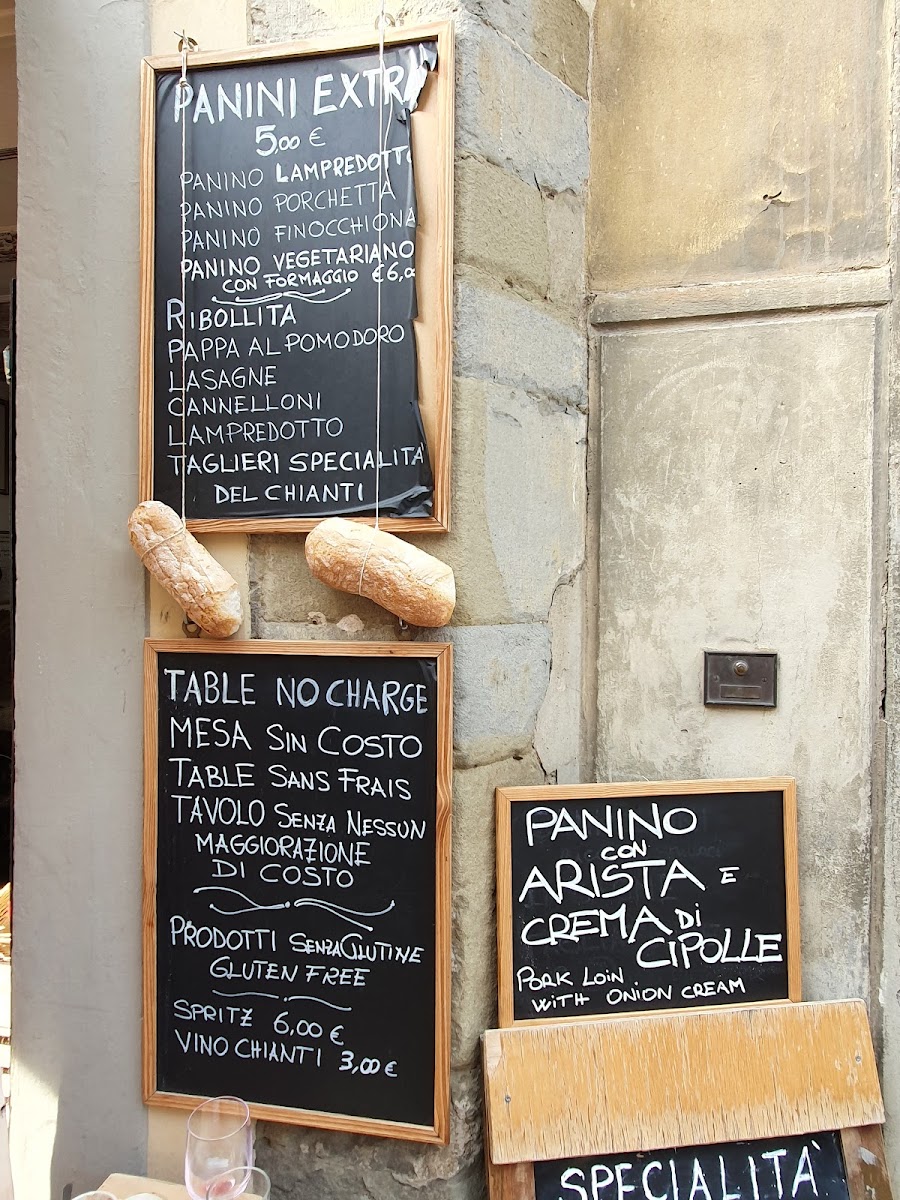 PANINI EXTRA
5,00 €
PANINO LAMPREDOTTO
PANINO PORCHETTA
PANINO FINOCCHIONA
PANINO VEGETARIANO
CON FORMAGGIO €6,00
RIBOLLITA
PAPPA AL POMODORO
LASAGNE
CANNELLONI
LAMPREDOTTO
TAGLIERI SPECIALITÀ
DEL CHIANTI
TABLE NO CHARGE
MESA SIN COSTO
TABLE SANS FRAIS
TAVOLO SENZA NESSUN
MAGGIORAZIONE
DI COSTO
PRODOTTI SENZA GLUTINE
GLUTEN FREE
SPRITZ 6,00 €
VINO CHIANTI 3,00 €
PANINO
CON
ARISTA E
CREMA DI
CIPOLLE
PORK LOIN
WITH ONION CREAM
SPECIALITÀ